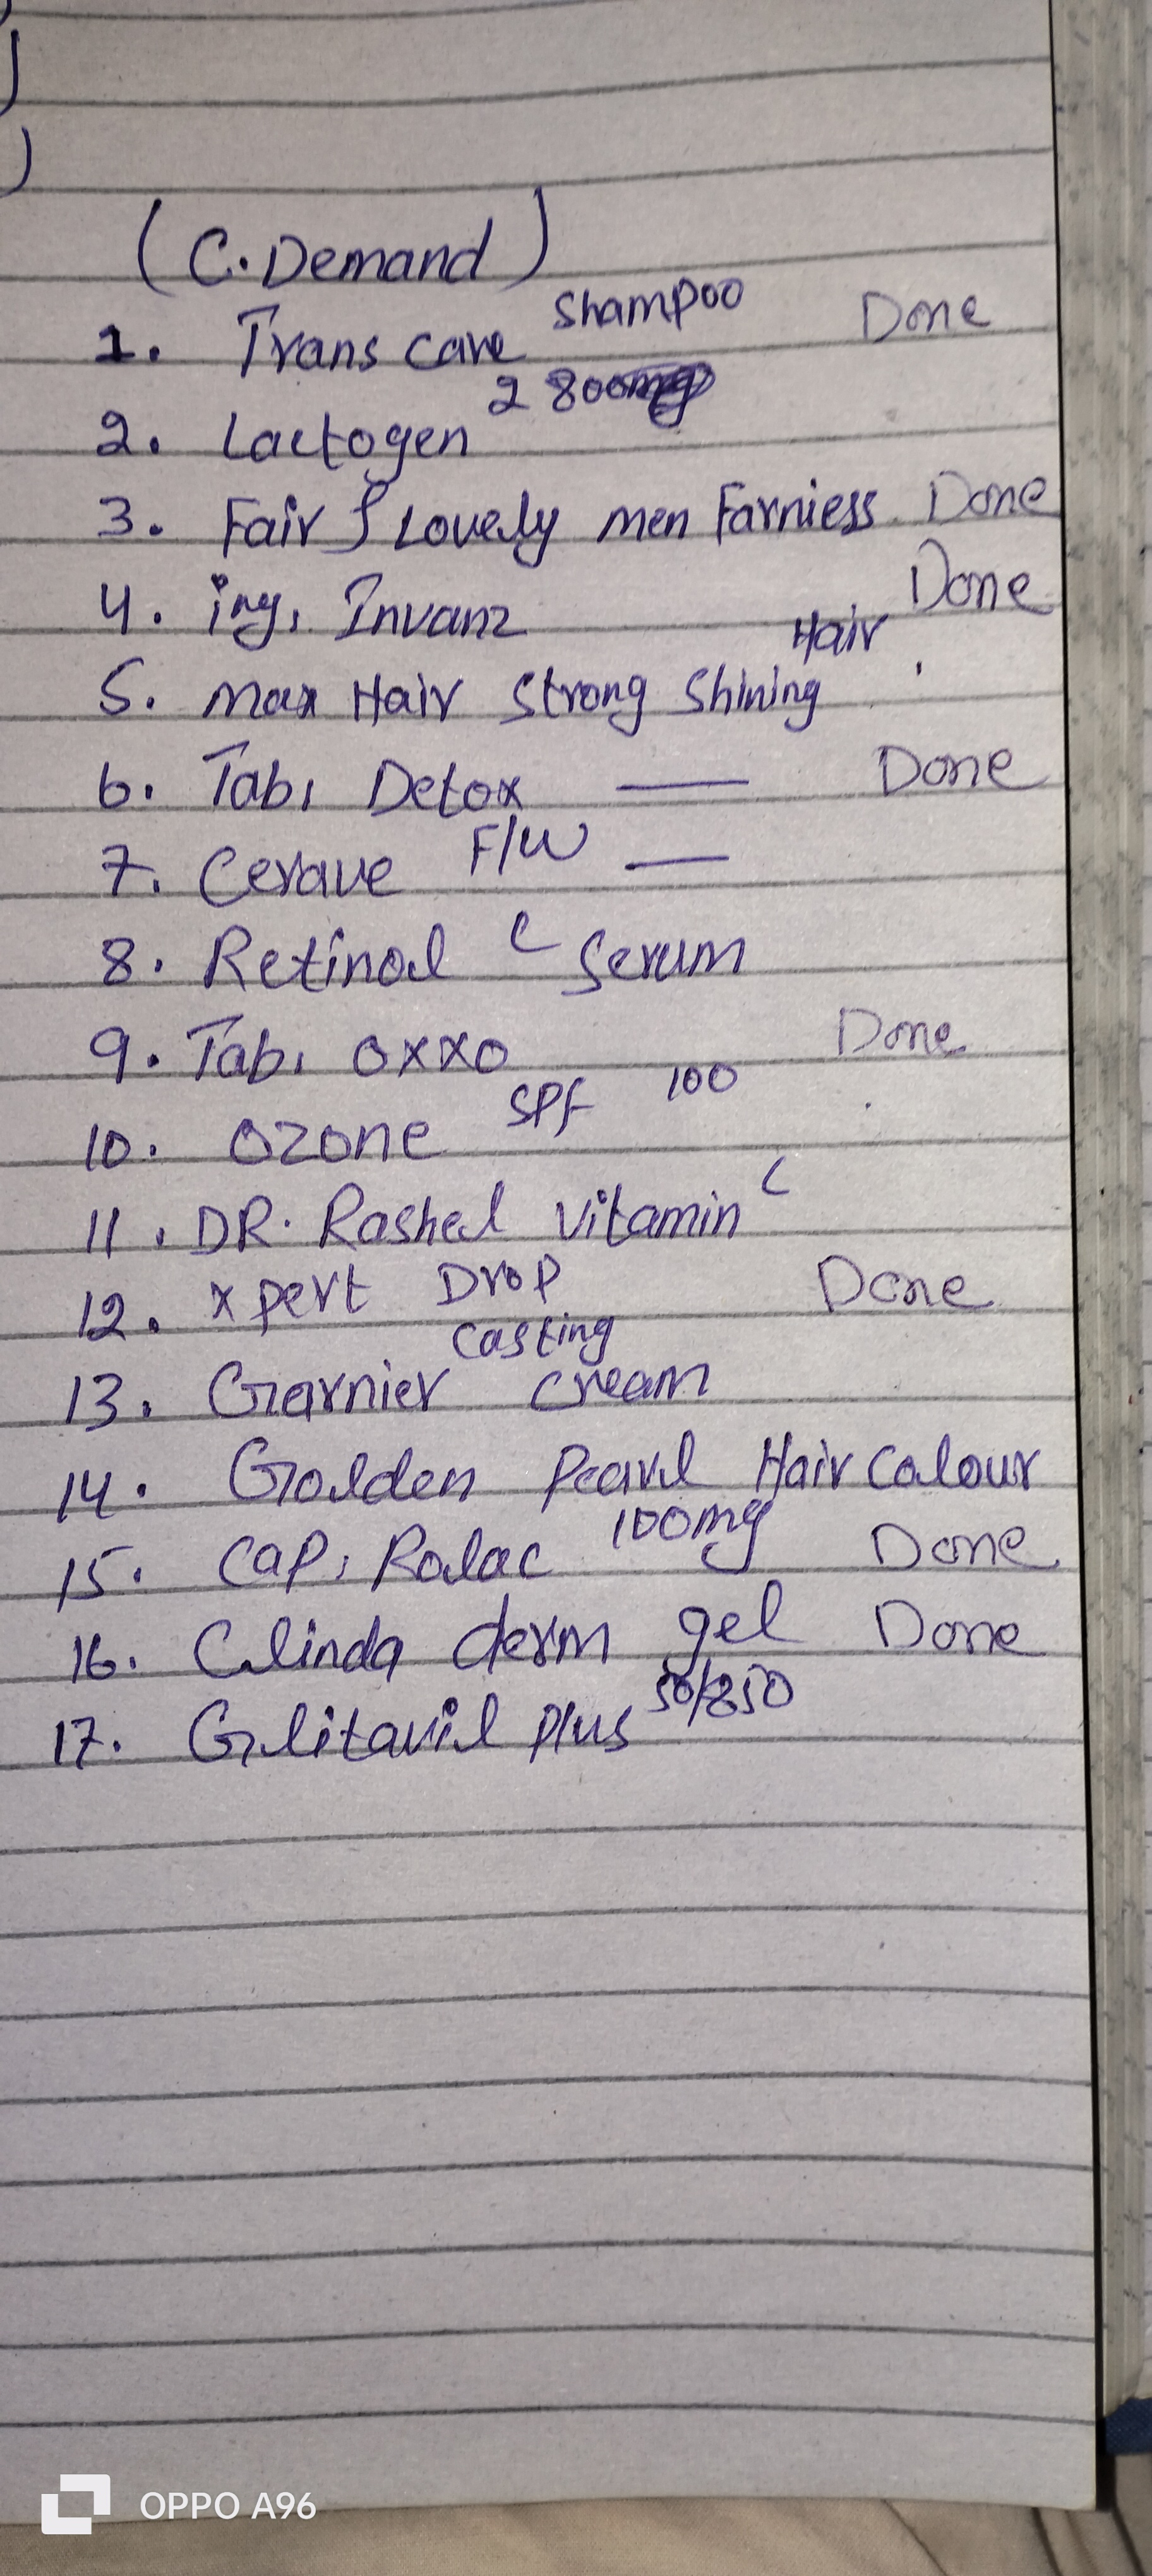 (C. Demand)
1. Trans care Shampoo Done
2. Lactogen 2 800
3. Fair & Lovely men Farniess Done
4. inj, Invanz Done
5. Max Hair Strong Shining Hair
6. Tab, Detox — Done
7. Cerave F/W —
8. Retinol C Serum
9. Tab, OXXO Done
10. Ozone SPF 100
11. DR. Rashel Vitamin C
12. Xpert Drop Done
13. Garnier Casting Cream
14. Golden Pearl Hair Colour
15. Cap, Rolac 100mg Done
16. Clinda derm gel Done
17. Glitavil Plus 50/850
OPPO A96